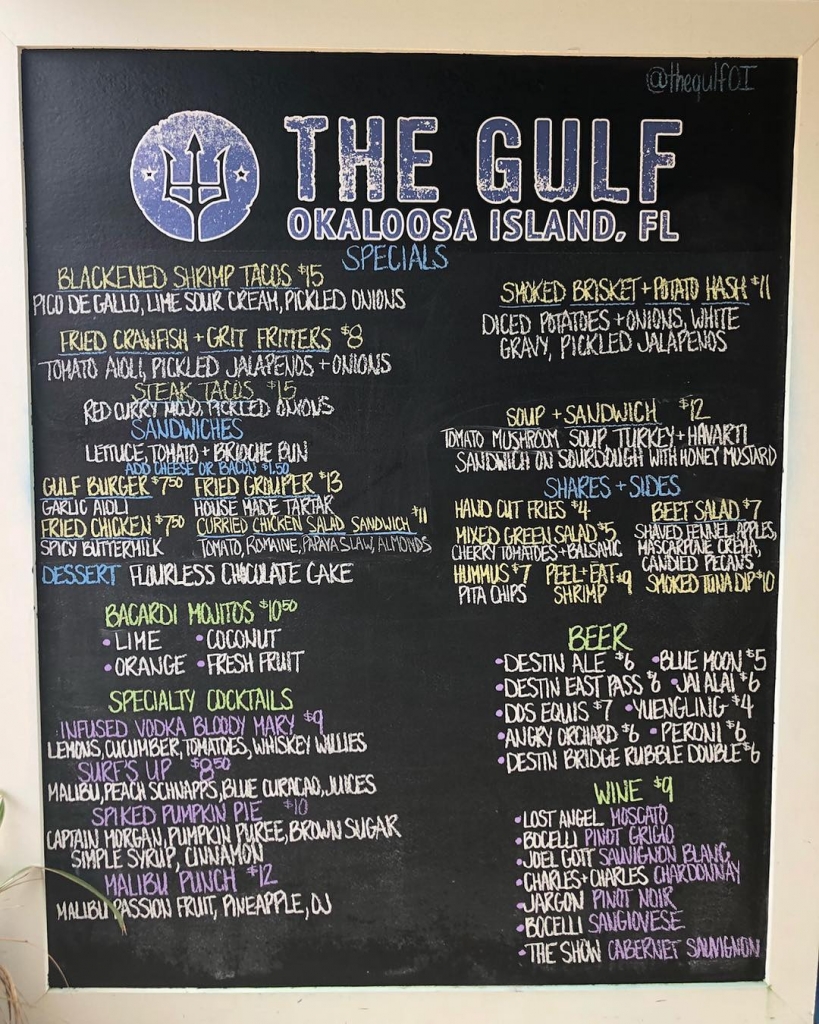 @thegulfOI
THE GULF
OKALOOSA ISLAND, FL
SPECIALS
BLACKENED SHRIMP TACOS $15
PICO DE GALLO, LIME SOUR CREAM, PICKLED ONIONS
FRIED CRAWFISH + GRIT FRITTERS $8
TOMATO AIOLI, PICKLED JALAPENOS + ONIONS
STEAK TACOS $15
RED CURRY MOJO, PICKLED ONIONS
SMOKED BRISKET + POTATO HASH $11
DICED POTATOES + ONIONS, WHITE
GRAVY, PICKLED JALAPENOS
SOUP + SANDWICH $12
TOMATO MUSHROOM SOUP, TURKEY + HAVARTI
SANDWICH ON SOURDOUGH WITH HONEY MUSTARD
SANDWICHES
LETTUCE, TOMATO + BRIOCHE BUN
ADD CHEESE OR BACON $1.50
GULF BURGER $7.50 FRIED GROUPER $13
GARLIC AIOLI HOUSE MADE TARTAR
FRIED CHICKEN $7.50 CURRIED CHICKEN SALAD SANDWICH $11
SPICY BUTTERMILK TOMATO, ROMAINE, PAPAYA SLAW, ALMONDS
DESSERT FLOURLESS CHOCOLATE CAKE
SHARES + SIDES
HAND CUT FRIES $4
MIXED GREEN SALAD $5
CHERRY TOMATOES + BALSAMIC
HUMMUS $7 PEEL + EAT $9
PITA CHIPS SHRIMP
BEET SALAD $7
SHAVED FENNEL, APPLES,
MASCARPONE CREMA,
CANDIED PECANS
SMOKED TUNA DIP $10
BACARDI MOJITOS $10.50
• LIME • COCONUT
• ORANGE • FRESH FRUIT
SPECIALTY COCKTAILS
INFUSED VODKA BLOODY MARY $9
LEMONS, CUCUMBER, TOMATOES, WHISKEY WILLIES
SURF'S UP $8.50
MALIBU, PEACH SCHNAPPS, BLUE CURACAO, JUICES
SPIKED PUMPKIN PIE $10
CAPTAIN MORGAN, PUMPKIN PUREE, BROWN SUGAR
SIMPLE SYRUP, CINNAMON
MALIBU PUNCH $12
MALIBU PASSION FRUIT, PINEAPPLE, OJ
BEER
• DESTIN ALE $6 • BLUE MOON $5
• DESTIN EAST PASS $6 • JAI ALAI $6
• DOS EQUIS $7 • YUENGLING $4
• ANGRY ORCHARD $6 • PERONI $6
• DESTIN BRIDGE RUBBLE DOUBLE $6
WINE $9
• LOST ANGEL MOSCATO
• BOCELLI PINOT GRIGIO
• JOEL GOTT SAUVIGNON BLANC
• CHARLES + CHARLES CHARDONNAY
• JARGON PINOT NOIR
• BOCELLI SANGIOVESE
• THE SHOW CABERNET SAUVIGNON